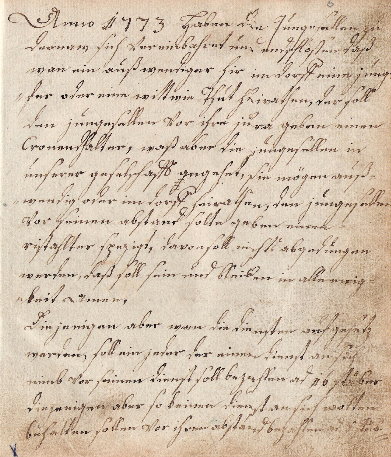 Anno 1773 Haben die Jungesellen zu
dernaw sich Vereinbahret und endschlossen daß
wan ein außwendiger hir im dorff eine jung
fer oder eine wittwe thut heirathen, der soll
den jungesellen Vor ihre jura geben einen
Cronenthaller, waß aber die jungesellen in
unserer geselschafft angehet, sie mögen auß
wendig oder im dorff heirathen, den jungesellen
Vor seinen abstand solle geben einen
rxthaller spezige, davon soll nichts abgedungen
werden, daß soll sein und bleiben in alle ewig
keit amen,
Diejenigen aber wan die diensten aufgesetz
werden, soll ein jeder der einen dienst an sich
nemb vor seinen dienst soll bezahlen ad 10 stüber
diejenigen aber so keinen dienst an sich wollen
behalten sollen Vor ihren abstand bezahlen ad